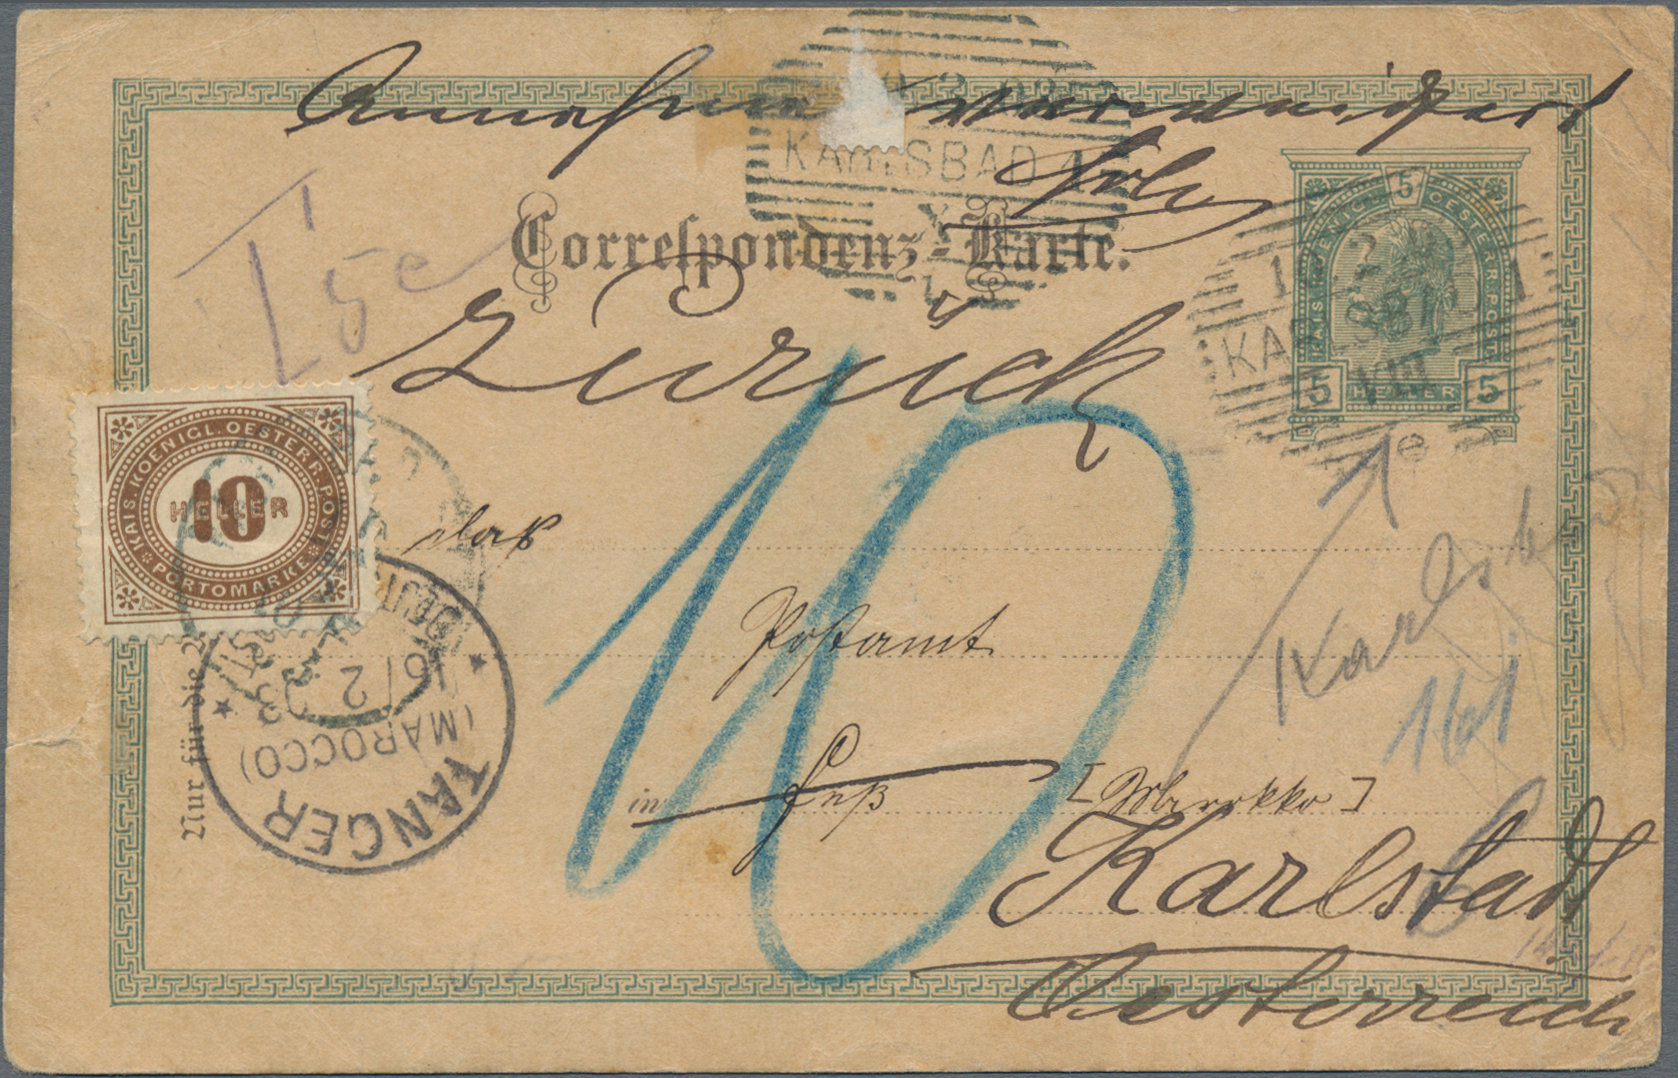 Annahme verweigert
KARLSBAD 1
Correspondenz-Karte.
T 5c
Zurück
KAIS. KOENIGL. OESTERR. POST
5
5 HELLER 5
VIII
KAIS. KOENIGL. OESTERR. POST
10
HELLER
PORTOMARKE
10
das
Postamt
in Feß [Marokko]
Karlsbad
161
Nur für die
TANGER
(MAROCCO)
16/2 03
DEUTSCHE
Karlstadt
Oesterreich